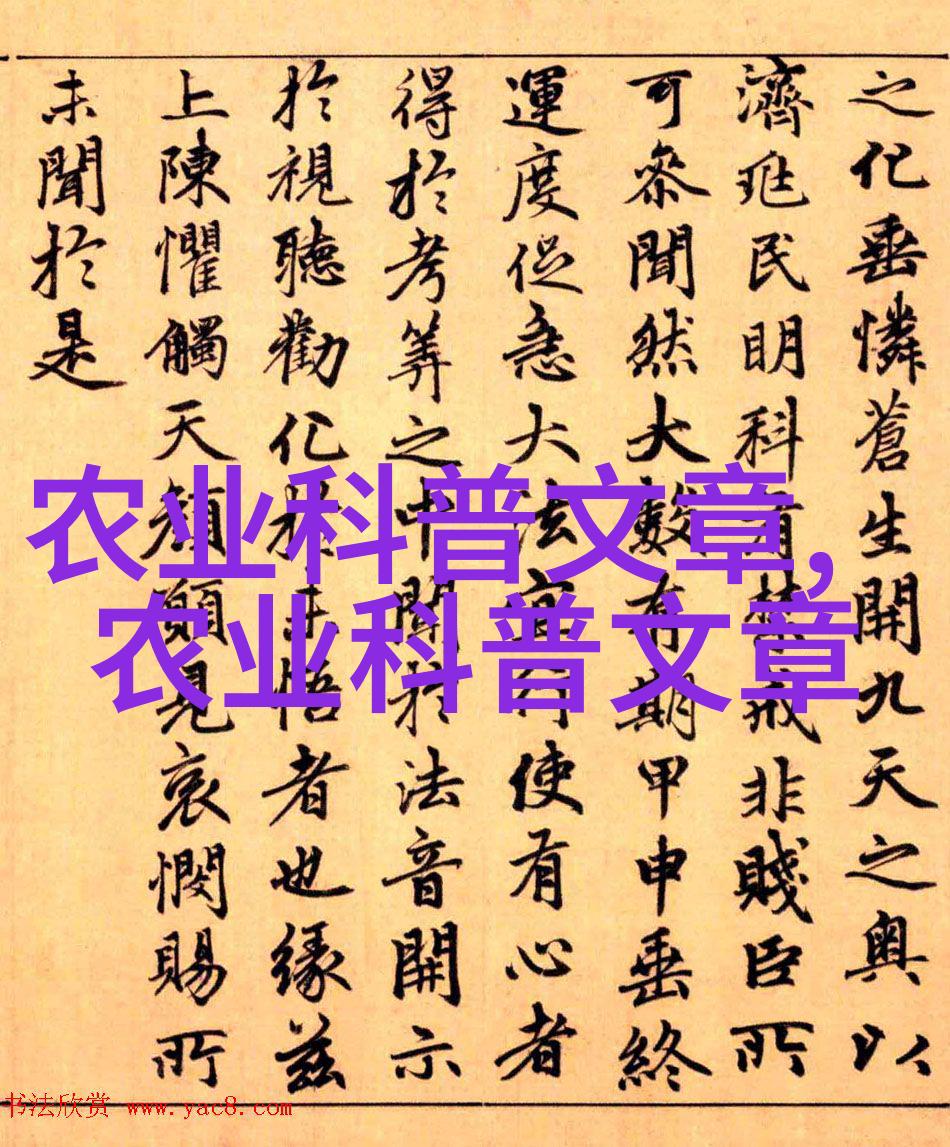 之化垂憐蒼生開九天之奥以
濟兆民明科有禁戒非賤臣所
可叅聞然大數有期甲申垂終
運度促急大法宜行使有心者
得於考筭之中聞於法音開示
於視聽勸化於未悟者也緣茲
上陳懼觸天顔願見哀憫賜所
未聞於是
农业科普文章,
农业科普文章
书法欣赏 www.yac8.com